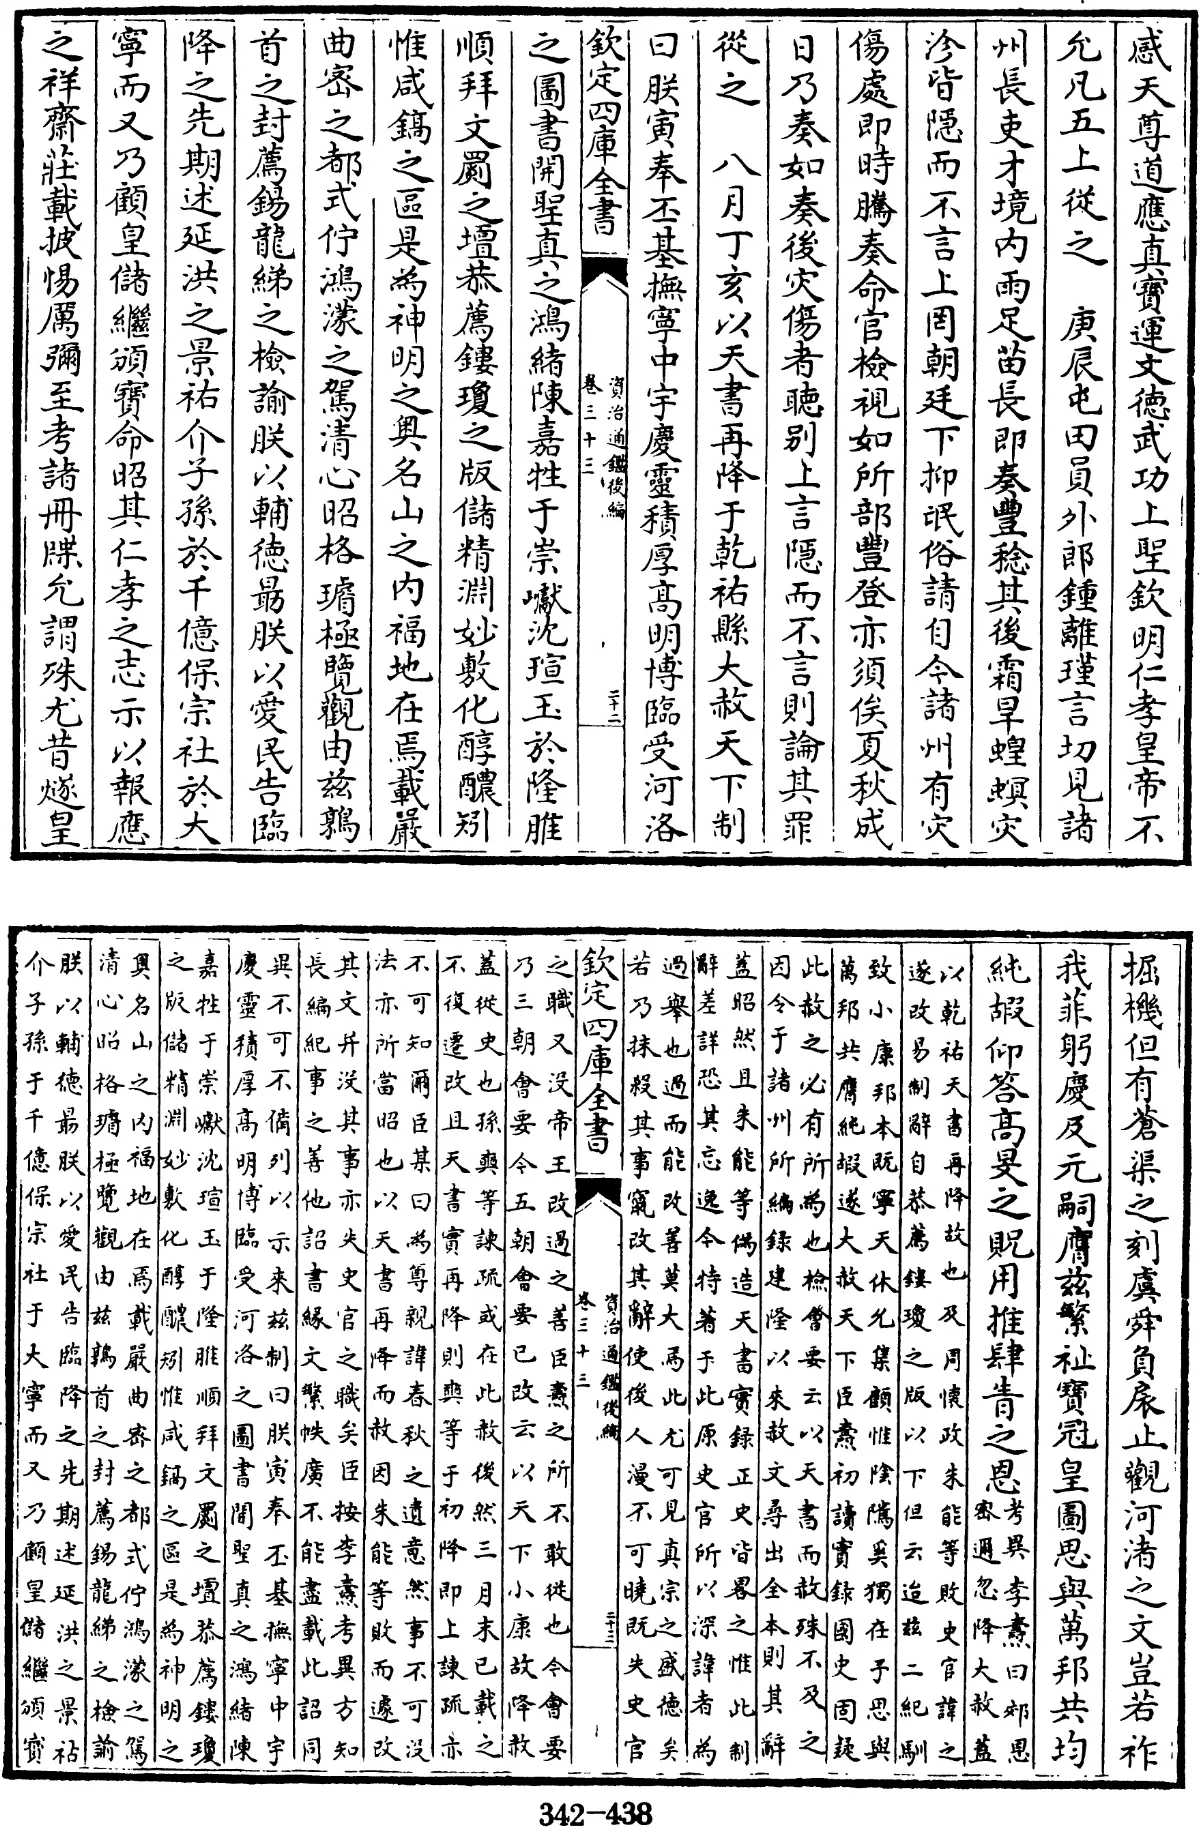 感天尊道應真寶運文徳武功上聖欽明仁孝皇帝不
允凡五上從之　庚辰屯田員外郎鍾離瑾言切見諸
州長吏才境内雨足苗長即奏豐稔其後霜旱蝗螟灾
沴皆隠而不言上罔朝廷下抑氓俗請自今諸州有灾
傷處即時騰奏命官檢視如所部豐登亦須俟夏秋成
日乃奏如奏後灾傷者聴别上言隠而不言則論其罪
從之　八月丁亥以天書再降于乾祐縣大赦天下制
曰朕寅奉丕基撫寧中宇慶靈積厚髙明博臨受河洛
欽定四庫全書
資治通鑑後編
卷三十三
三十二
之圖書開聖真之鴻緒陳嘉牲于崇巘沈瑄玉於隆脽
順拜文罽之壇恭薦鏤瓊之版儲精淵妙敷化醇醲矧
惟咸鎬之區是為神明之奥名山之内福地在焉載嚴
曲宻之都式佇鴻濛之駕清心昭格極覽觀由兹鶉
首之封薦錫龍綈之檢諭朕以輔徳朂朕以愛民告臨
降之先期述延洪之景祐介子孫於千億保宗社於大
寧而又乃顧皇儲繼頒寶命昭其仁孝之志示以報應
之祥齋莊載披惕厲彌至考諸冊牒允謂殊尤昔燧皇
握機但有蒼渠之刻虞舜負扆止觀河渚之文豈若祚
我菲躬慶及元嗣膺兹繁祉寶冠皇圖思與萬邦共均
純嘏仰答髙旻之貺用推肆眚之恩
考異李燾曰郊恩
宻邇忽降大赦葢
以乾祐天書再降故也及周懐政朱能等敗史官諱之
遂改易制辭自恭薦鏤瓊之版以下但云迨兹二紀馴
致小康邦本既寧天休允集顧惟隂隲奚獨在予思與
萬邦共膺純嘏遂大赦天下臣燾初讀實録國史固疑
此赦之必有所為也檢會要云以天書而赦殊不及之
因令于諸州所編録建隆以来赦文尋出全本則其辭
蓋昭然且朱能等偽造天書實録正史皆畧之惟此制
辭差詳恐其忘逸今特著于此原史官所以深諱者為
過舉也過而能改善莫大焉此尤可見真宗之盛徳矣
若乃抹殺其事竄改其辭使後人漫不可曉既失史官
欽定四庫全書
資治通鑑後編
卷三十三
三十三
之職又没帝王改過之善臣燾之所不敢從也今會要
乃三朝會要今五朝會要已改云以天下小康故降赦
蓋從史也孫奭等諫疏或在此赦後然三月末已載之
不復遷改且天書實再降則奭等于初降即上諫疏亦
不可知爾臣某曰為尊親諱春秋之遺意然事不可没
法亦所當昭也以天書再降而赦因朱能等敗而遽改
其文并没其事亦失史官之職矣臣按李燾考異方知
長編紀事之善他詔書縁文繁帙廣不能盡載此詔同
異不可不備列以示来兹制曰朕寅奉丕基撫寧中宇
慶靈積厚髙明博臨受河洛之圖書開聖真之鴻緒陳
嘉牲于崇巘沈瑄玉于隆脽順拜文罽之壇恭薦鏤瓊
之版儲精淵妙敷化醇醲矧惟咸鎬之區是為神明之
奥名山之内福地在焉載嚴曲宻之都式佇鴻濛之駕
清心昭格極覽觀由兹鶉首之封薦錫龍綈之檢諭
朕以輔徳朂朕以愛民告臨降之先期述延洪之景祐
介子孫于千億保宗社于大寧而又乃顧皇儲繼頒寳
342-438